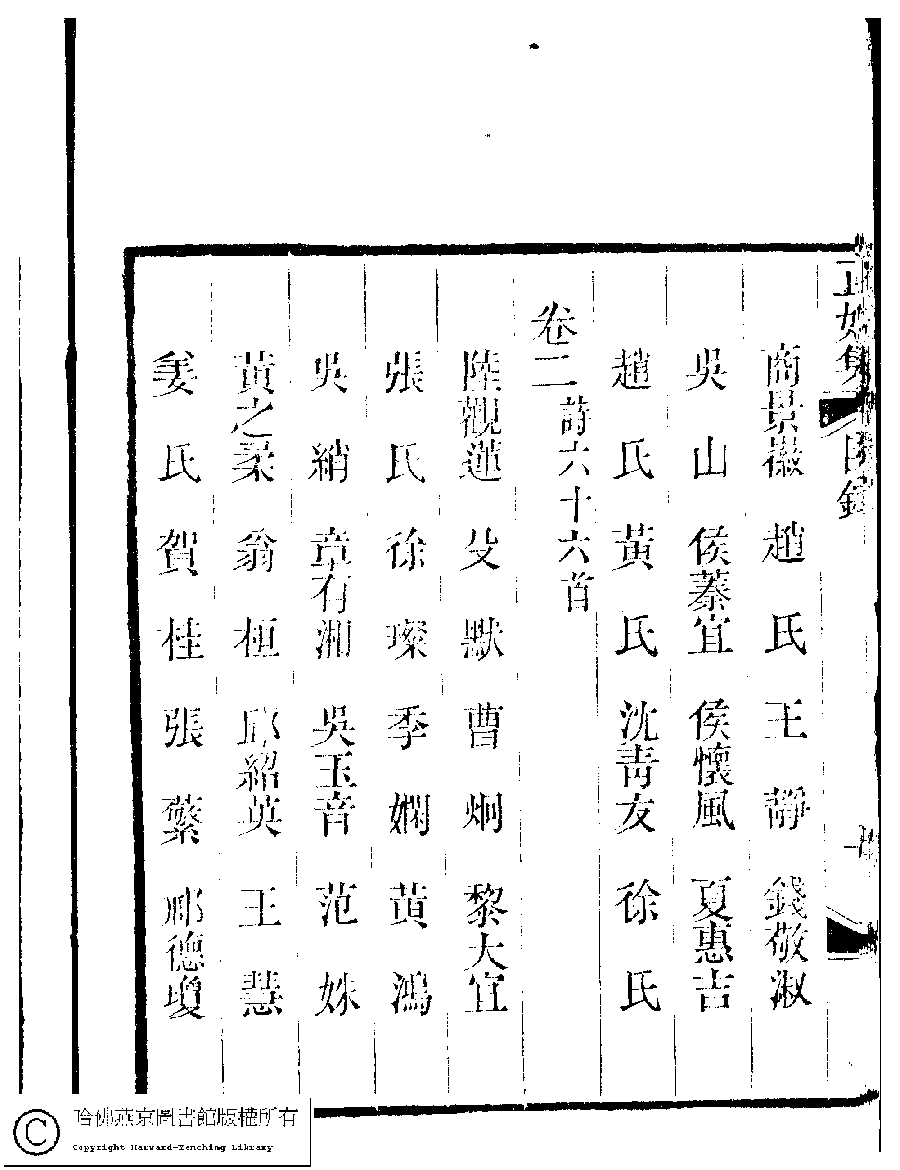 正始集 目錄
商景徽 趙氏 王靜 錢敬淑
吳山 侯蓁宜 侯懷風 夏惠吉
趙氏 黃氏 沈青友 徐氏
卷二 詩六十六首
陸觀蓮 殳默 曹炯 黎大宜
張氏 徐璨 季嫻 黃鴻
吳綃 章有湘 吳玉音 范姝
黃之柔 翁桓 邱紹英 王慧
姜氏 賀桂 張蘩 鄺德瓊
哈佛燕京圖書館版權所有
Copyright Harvard-Yenching Library